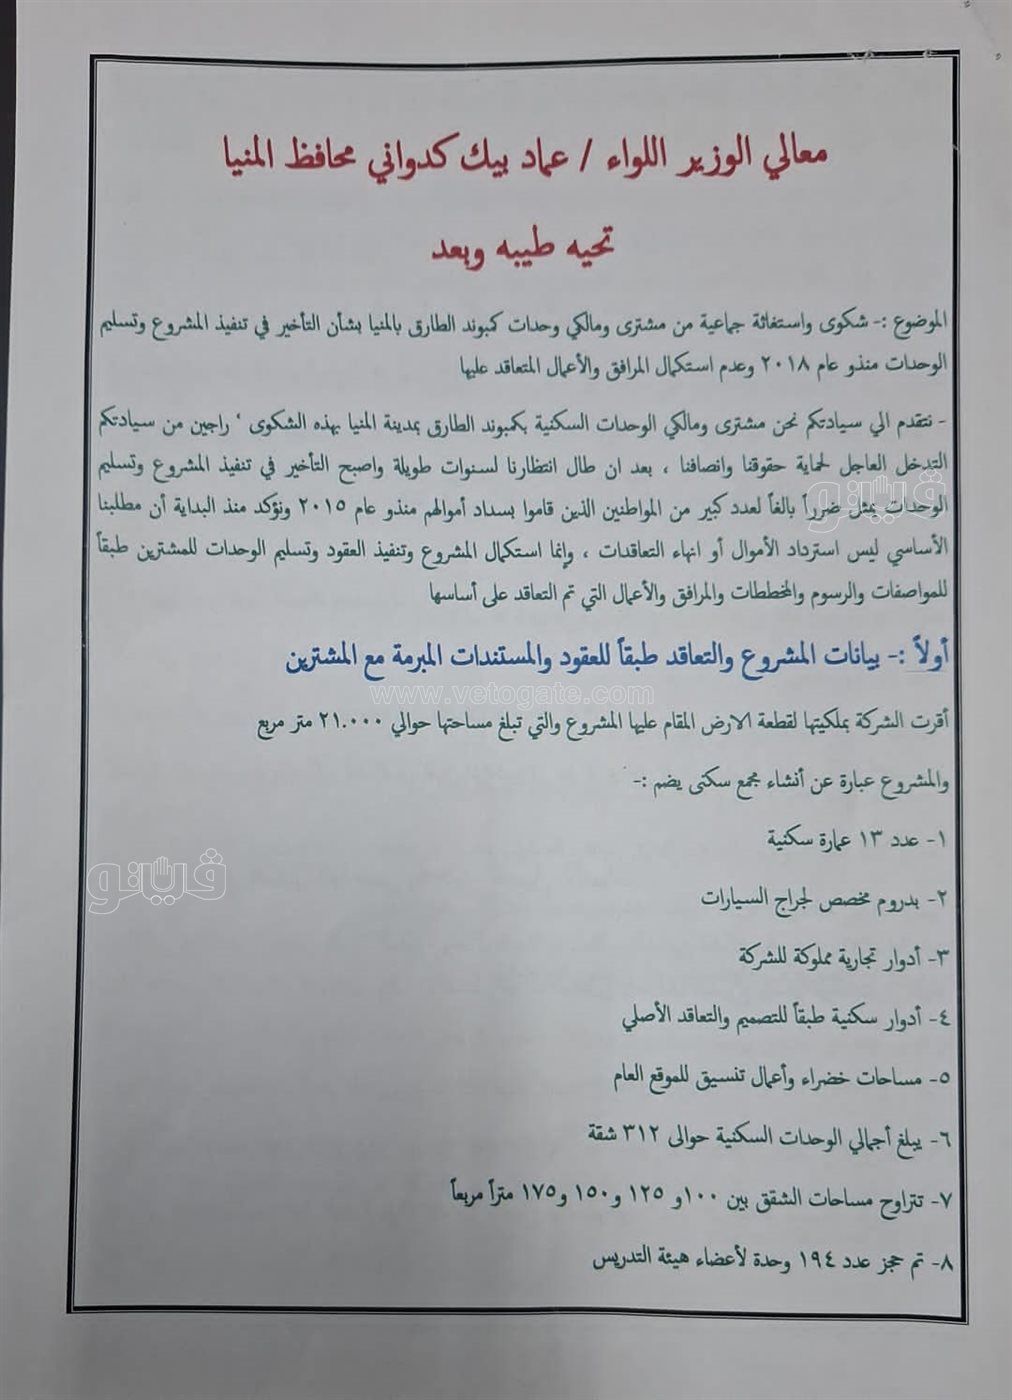 معالي الوزير اللواء / عماد بيك كدواني محافظ المنيا
تحيه طيبه وبعد
الموضوع :- شكوى واستغاثة جماعية من مشترى ومالكي وحدات كمبوند الطارق بالمنيا بشأن التأخير في تنفيذ المشروع وتسليم
الوحدات منذو عام ٢٠١٨ وعدم استكمال المرافق والأعمال المتعاقد عليها
- نتقدم الي سيادتكم نحن مشترى ومالكي الوحدات السكنية بكمبوند الطارق بمدينة المنيا بهذه الشكوى ‘ راجين من سيادتكم
التدخل العاجل لحماية حقوقنا وانصافنا ، بعد ان طال انتظارنا لسنوات طويلة واصبح التأخير في تنفيذ المشروع وتسليم
الوحدات يمثل ضرراً بالغاً لعدد كبير من المواطنين الذين قاموا بسداد أموالهم منذو عام ٢٠١٥ ونؤكد منذ البداية أن مطلبنا
الأساسي ليس استرداد الأموال أو انهاء التعاقدات ، وإنما استكمال المشروع وتنفيذ العقود وتسليم الوحدات للمشترين طبقاً
للمواصفات والرسوم والمخططات والمرافق والأعمال التي تم التعاقد على أساسها
أولاً :- بيانات المشروع والتعاقد طبقاً للعقود والمستندات المبرمة مع المشترين
www.vetogate.com
أقرت الشركة بملكيتها لقطعة الارض المقام عليها المشروع والتي تبلغ مساحتها حوالي ٢١.٠٠٠ متر مربع
والمشروع عبارة عن أنشاء مجمع سكنى يضم :-
١- عدد ١٣ عمارة سكنية
٢- بدروم مخصص لجراج السيارات
٣- أدوار تجارية مملوكة للشركة
٤- أدوار سكنية طبقاً للتصميم والتعاقد الأصلي
٥- مساحات خضراء وأعمال تنسيق للموقع العام
٦- يبلغ أجمالي الوحدات السكنية حوالى ٣١٢ شقة
٧- تتراوح مساحات الشقق بين ١٠٠و ١٢٥ و١٥٠ و١٧٥ متراً مربعاً
٨- تم حجز عدد ١٩٤ وحدة لأعضاء هيئة التدريس
ڤيتو
ڤيتو